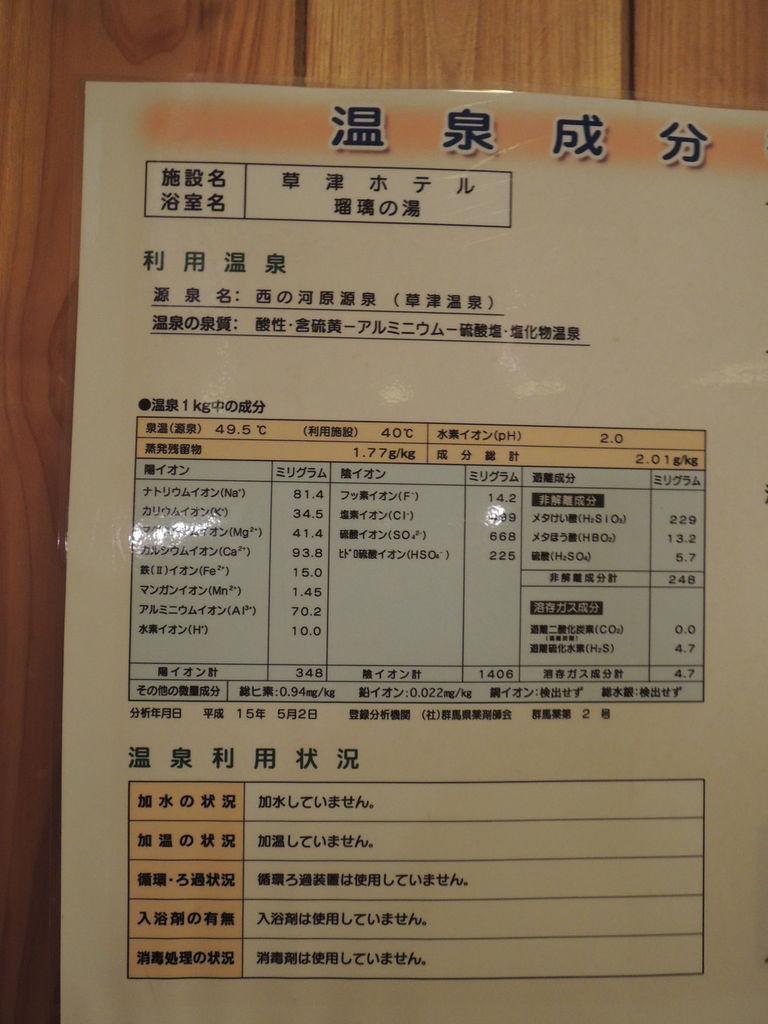 温泉成分
施設名 草津ホテル
浴室名 瑠璃の湯
利用温泉
源泉名: 西の河原源泉（草津温泉）
温泉の泉質: 酸性・含硫黄－アルミニウム－硫酸塩・塩化物温泉
●温泉1kg中の成分
泉温(源泉) 49.5℃ (利用施設) 40℃ 水素イオン(pH) 2.0
蒸発残留物 1.77g/kg 成分総計 2.01g/kg
陽イオン ミリグラム 陰イオン ミリグラム 遊離成分 ミリグラム
ナトリウムイオン(Na⁺) 81.4 フッ素イオン(F⁻) 14.2 非解離成分
カリウムイオン(K⁺) 34.5 塩素イオン(Cl⁻) メタけい酸(H₂SiO₃) 229
イオン(Mg²⁺) 41.4 硫酸イオン(SO₄²⁻) 668 メタほう酸(HBO₂) 13.2
カルシウムイオン(Ca²⁺) 93.8 ヒドロ硫酸イオン(HSO₄⁻) 225 硫酸(H₂SO₄) 5.7
鉄(Ⅱ)イオン(Fe²⁺) 15.0 非解離成分計 248
マンガンイオン(Mn²⁺) 1.45
アルミニウムイオン(Al³⁺) 70.2 溶存ガス成分
水素イオン(H⁺) 10.0 遊離二酸化炭素(CO₂) 0.0
遊離硫化水素(H₂S) 4.7
陽イオン計 348 陰イオン計 1406 溶存ガス成分計 4.7
その他の微量成分 総ヒ素:0.94mg/kg 鉛イオン:0.022mg/kg 銅イオン:検出せず 総水銀:検出せず
分析年月日 平成 15年 5月2日 登録分析機関 (社)群馬県薬剤師会 群馬薬第 2 号
温泉利用状況
加水の状況 加水していません。
加温の状況 加温していません。
循環・ろ過状況 循環ろ過装置は使用していません。
入浴剤の有無 入浴剤は使用していません。
消毒処理の状況 消毒剤は使用していません。